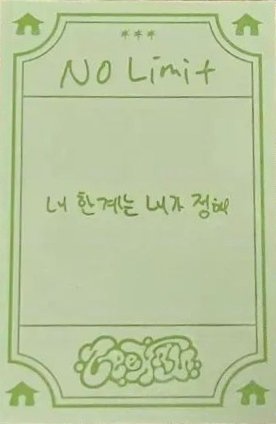 ***
No Limit
내 한계는 내가 정해